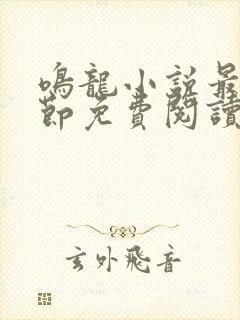 鳴龍小説最
節免費閱讀
玄外飛音